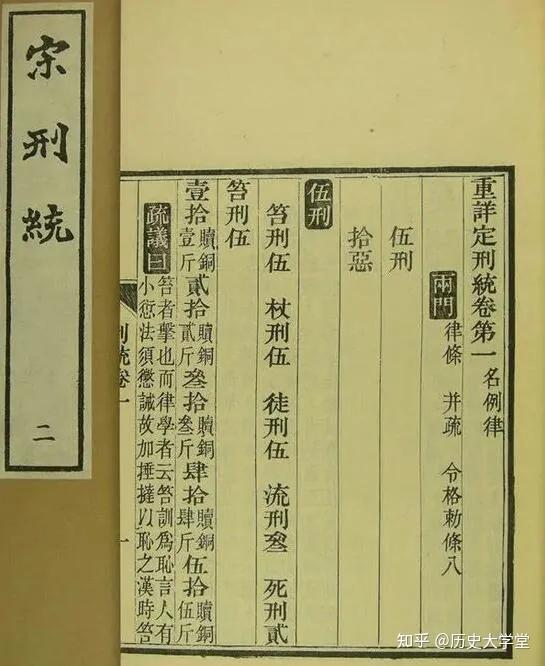 宋刑統
二
重詳定刑統卷第一 名例律
兩門 律條 并疏 令格勅條八
伍刑
拾惡
伍刑
笞刑伍 杖刑伍 徒刑伍 流刑叄 死刑貳
笞刑伍
壹拾贖銅壹斤貳拾贖銅貳斤叄拾贖銅叄斤肆拾贖銅肆斤伍拾贖銅伍斤
疏議曰 笞者擊也而律學者云笞訓爲恥言人有
小愆法須懲誡故加捶撻以恥之漢時笞
刑統卷一
一
知乎 @历史大学堂